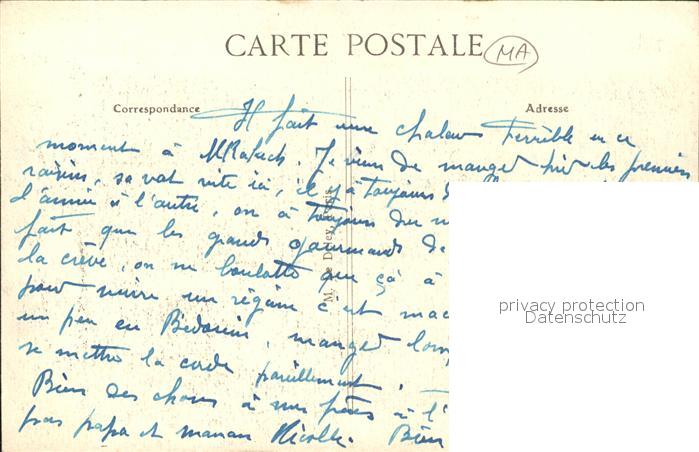 CARTE POSTALE MA
Correspondance Adresse
Il fait une chaleur terrible en ce
moment à MRakech. Je viens de manger hier les premiers
raisins, sa vat vite ici, il y à toujours
d'année à l'autre, on à toujours du
fait que les grands gourmands de
la crève, on ne boulotte que çà à
pour suivre un régime c'est
un peu en Bédouin, manger
se mettre la corde pareillement.
Bien des choses à nos frères à l'
pas papa et maman Nicolle. Bien
privacy protection
Datenschutz